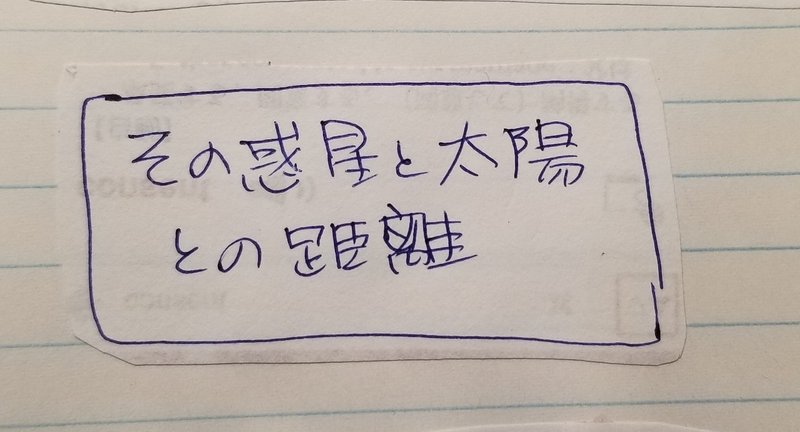 その惑星と太陽
との距離